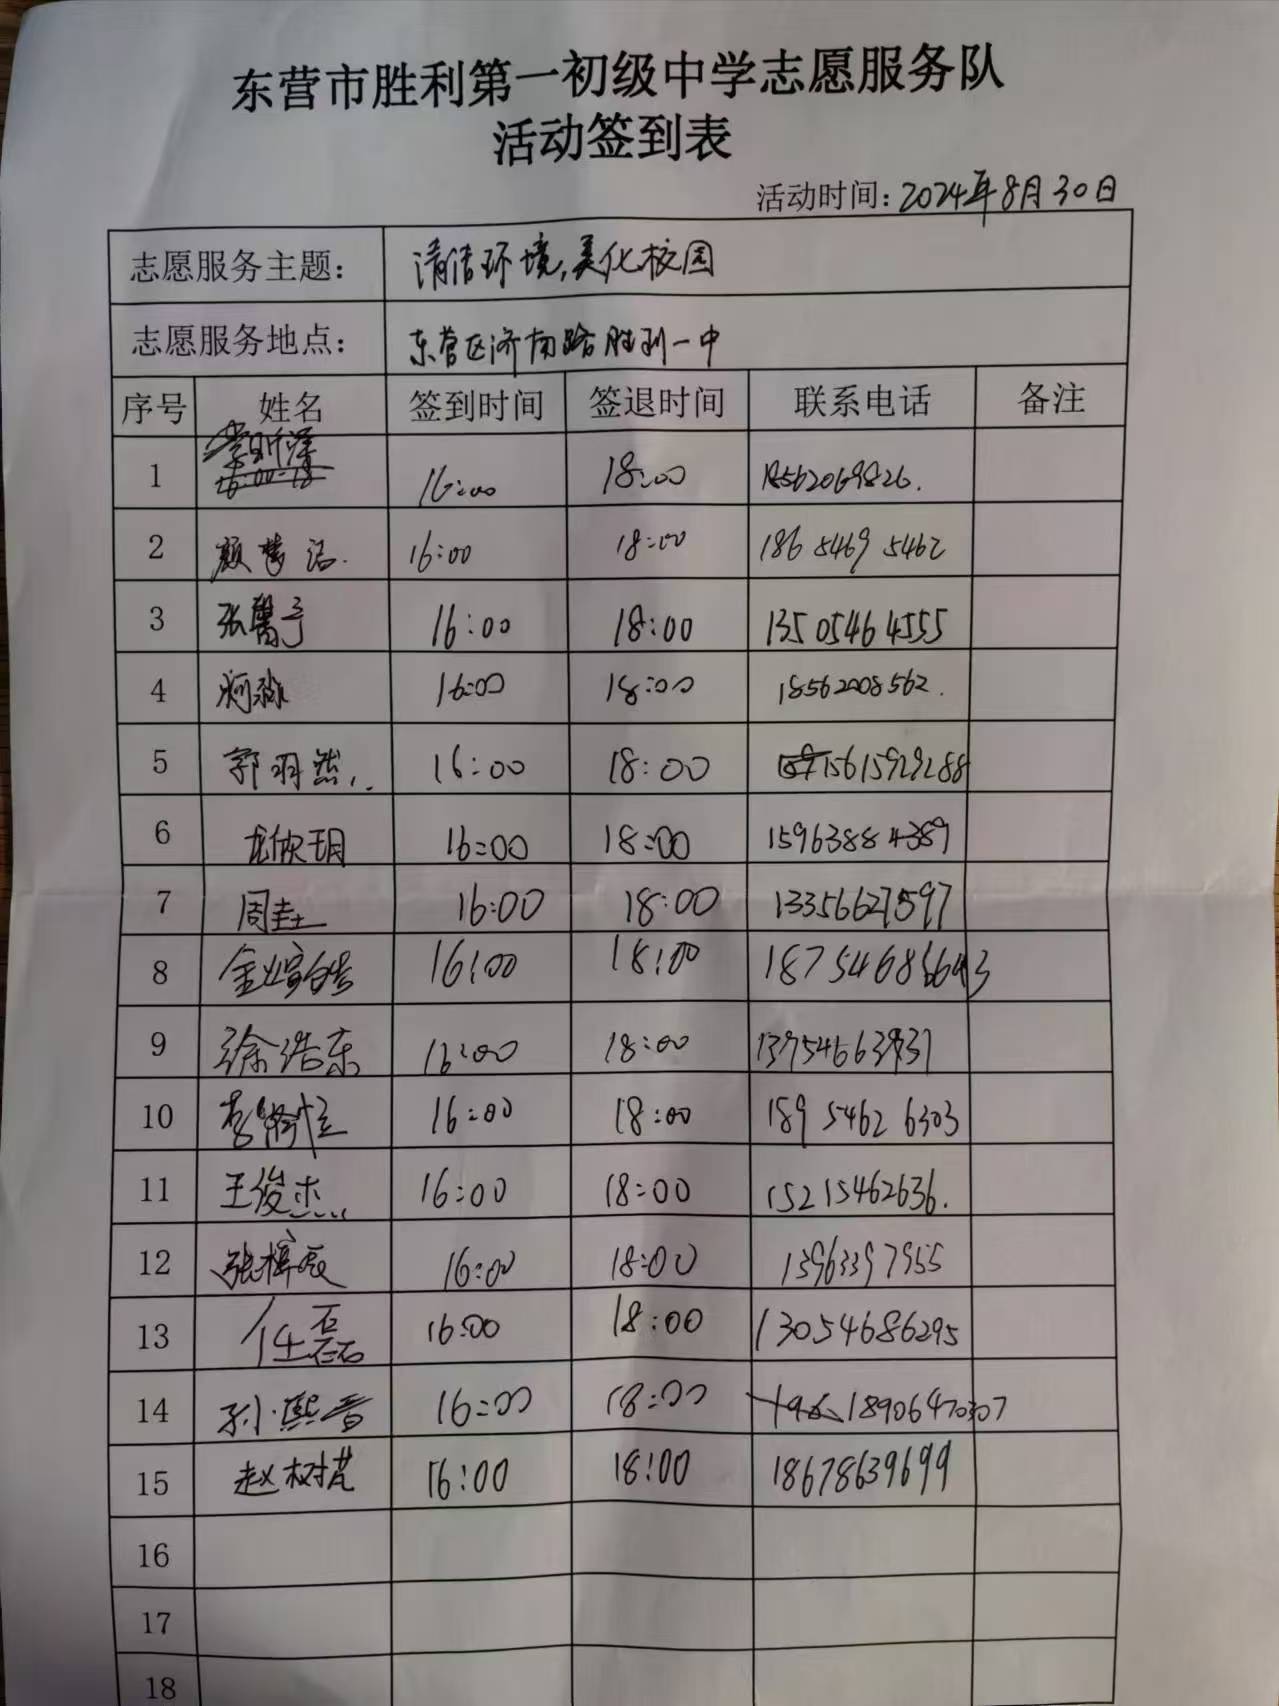 东营市胜利第一初级中学志愿服务队
活动签到表
活动时间：2024年8月30日
志愿服务主题： 清洁环境,美化校园
志愿服务地点： 东营区济南路胜利一中
序号 姓名 签到时间 签退时间 联系电话 备注
1 16:00 18:00 18562069826.
2 颜梦洁. 16:00 18:00 186 5469 5462
3 张馨予 16:00 18:00 13505464555
4 16:00 18:00 18562008562.
5 郭羽然 16:00 18:00 15615929288
6 龙欣玥 16:00 18:00 15963884389
7 周圭 16:00 18:00 13356627597
8 金 16:00 18:00
9 徐浩东 16:00 18:00
10 李 16:00 18:00 189 5462 6303
11 王俊杰 16:00 18:00 15215462636.
12 张梓辰 16:00 18:00 13963397955
13 任磊 16:00 18:00 13054686295
14 孙熙晋 16:00 18:00 18906470307
15 赵树芃 16:00 18:00 18678639699
16
17
18